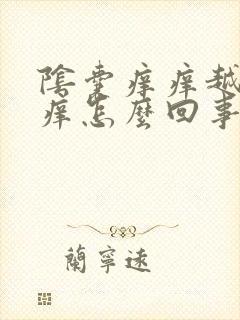 陰囊痒痒越
痒怎麼回事
蘭寧遠